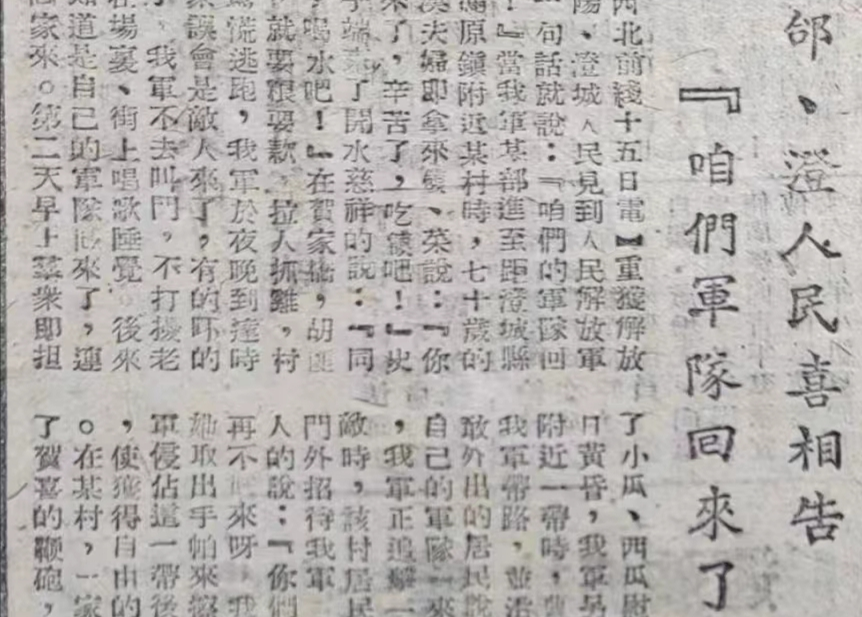 郃、澄人民喜相告
『咱們軍隊回來了
西北前綫十五日電】重獲解放
陽、澄城人民見到人民解放軍
一句話就說：『咱們的軍隊回
！』當我軍某部進至距澄城縣
原鎮附近某村時，七十歲的
夫婦即拿來饃、菜說：『你
來了，辛苦了，吃饃吧！』
端來了開水慈祥的說：『同
喝水吧！』在賀家，胡匪
就要糧要款，拉人抓雞，村
慌逃跑，我軍於夜晚到達時
誤會是敵人來了，有的吓的
，我軍不去叫門，不打擾老
在場裏、街上唱歌睡覺。後來
知道是自己的軍隊回來了，連
家來。第二天早上羣衆即担
了小瓜、西瓜慰
日黃昏，我軍另
附近一帶時，
我軍帶路，並
敢外出的居民說
自己的軍隊一來
，我軍正追一
敵時，該村居民
門外招待我軍
人的說：『你們
再不來呀，我
她取出手帕來擦
軍侵佔這一帶後
，使獲得自由的
。在某村，一家
了賀喜的鞭砲，